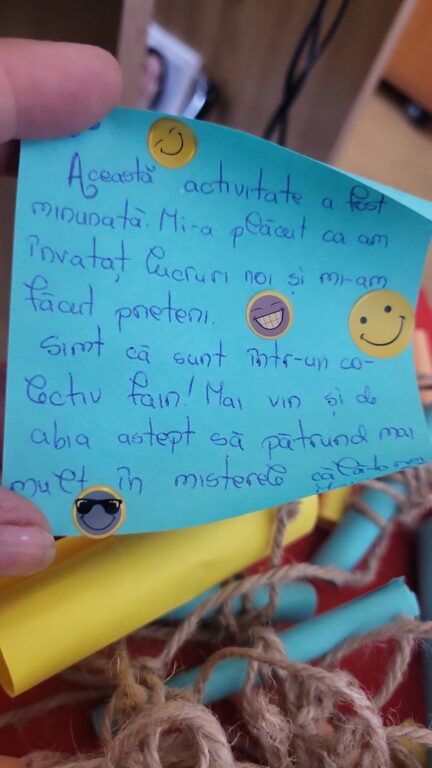 Această activitate a fost
minunată. Mi-a plăcut ca am
învataț lucruri noi și mi-am
făcut prieteni.
Simt că sunt într-un co-
lectiv fain! Mai vin și de
abia astept să pătrund mai
mult în misterele